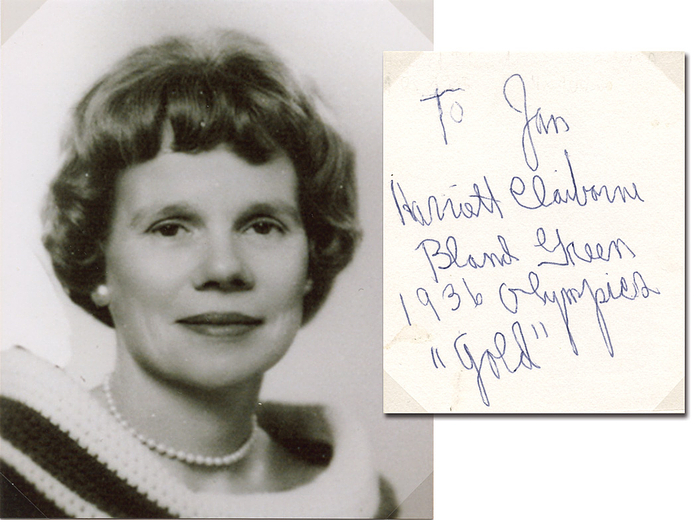 To Jan
Harriett Claiborne
Bland Green
1936 Olympics
"Gold"